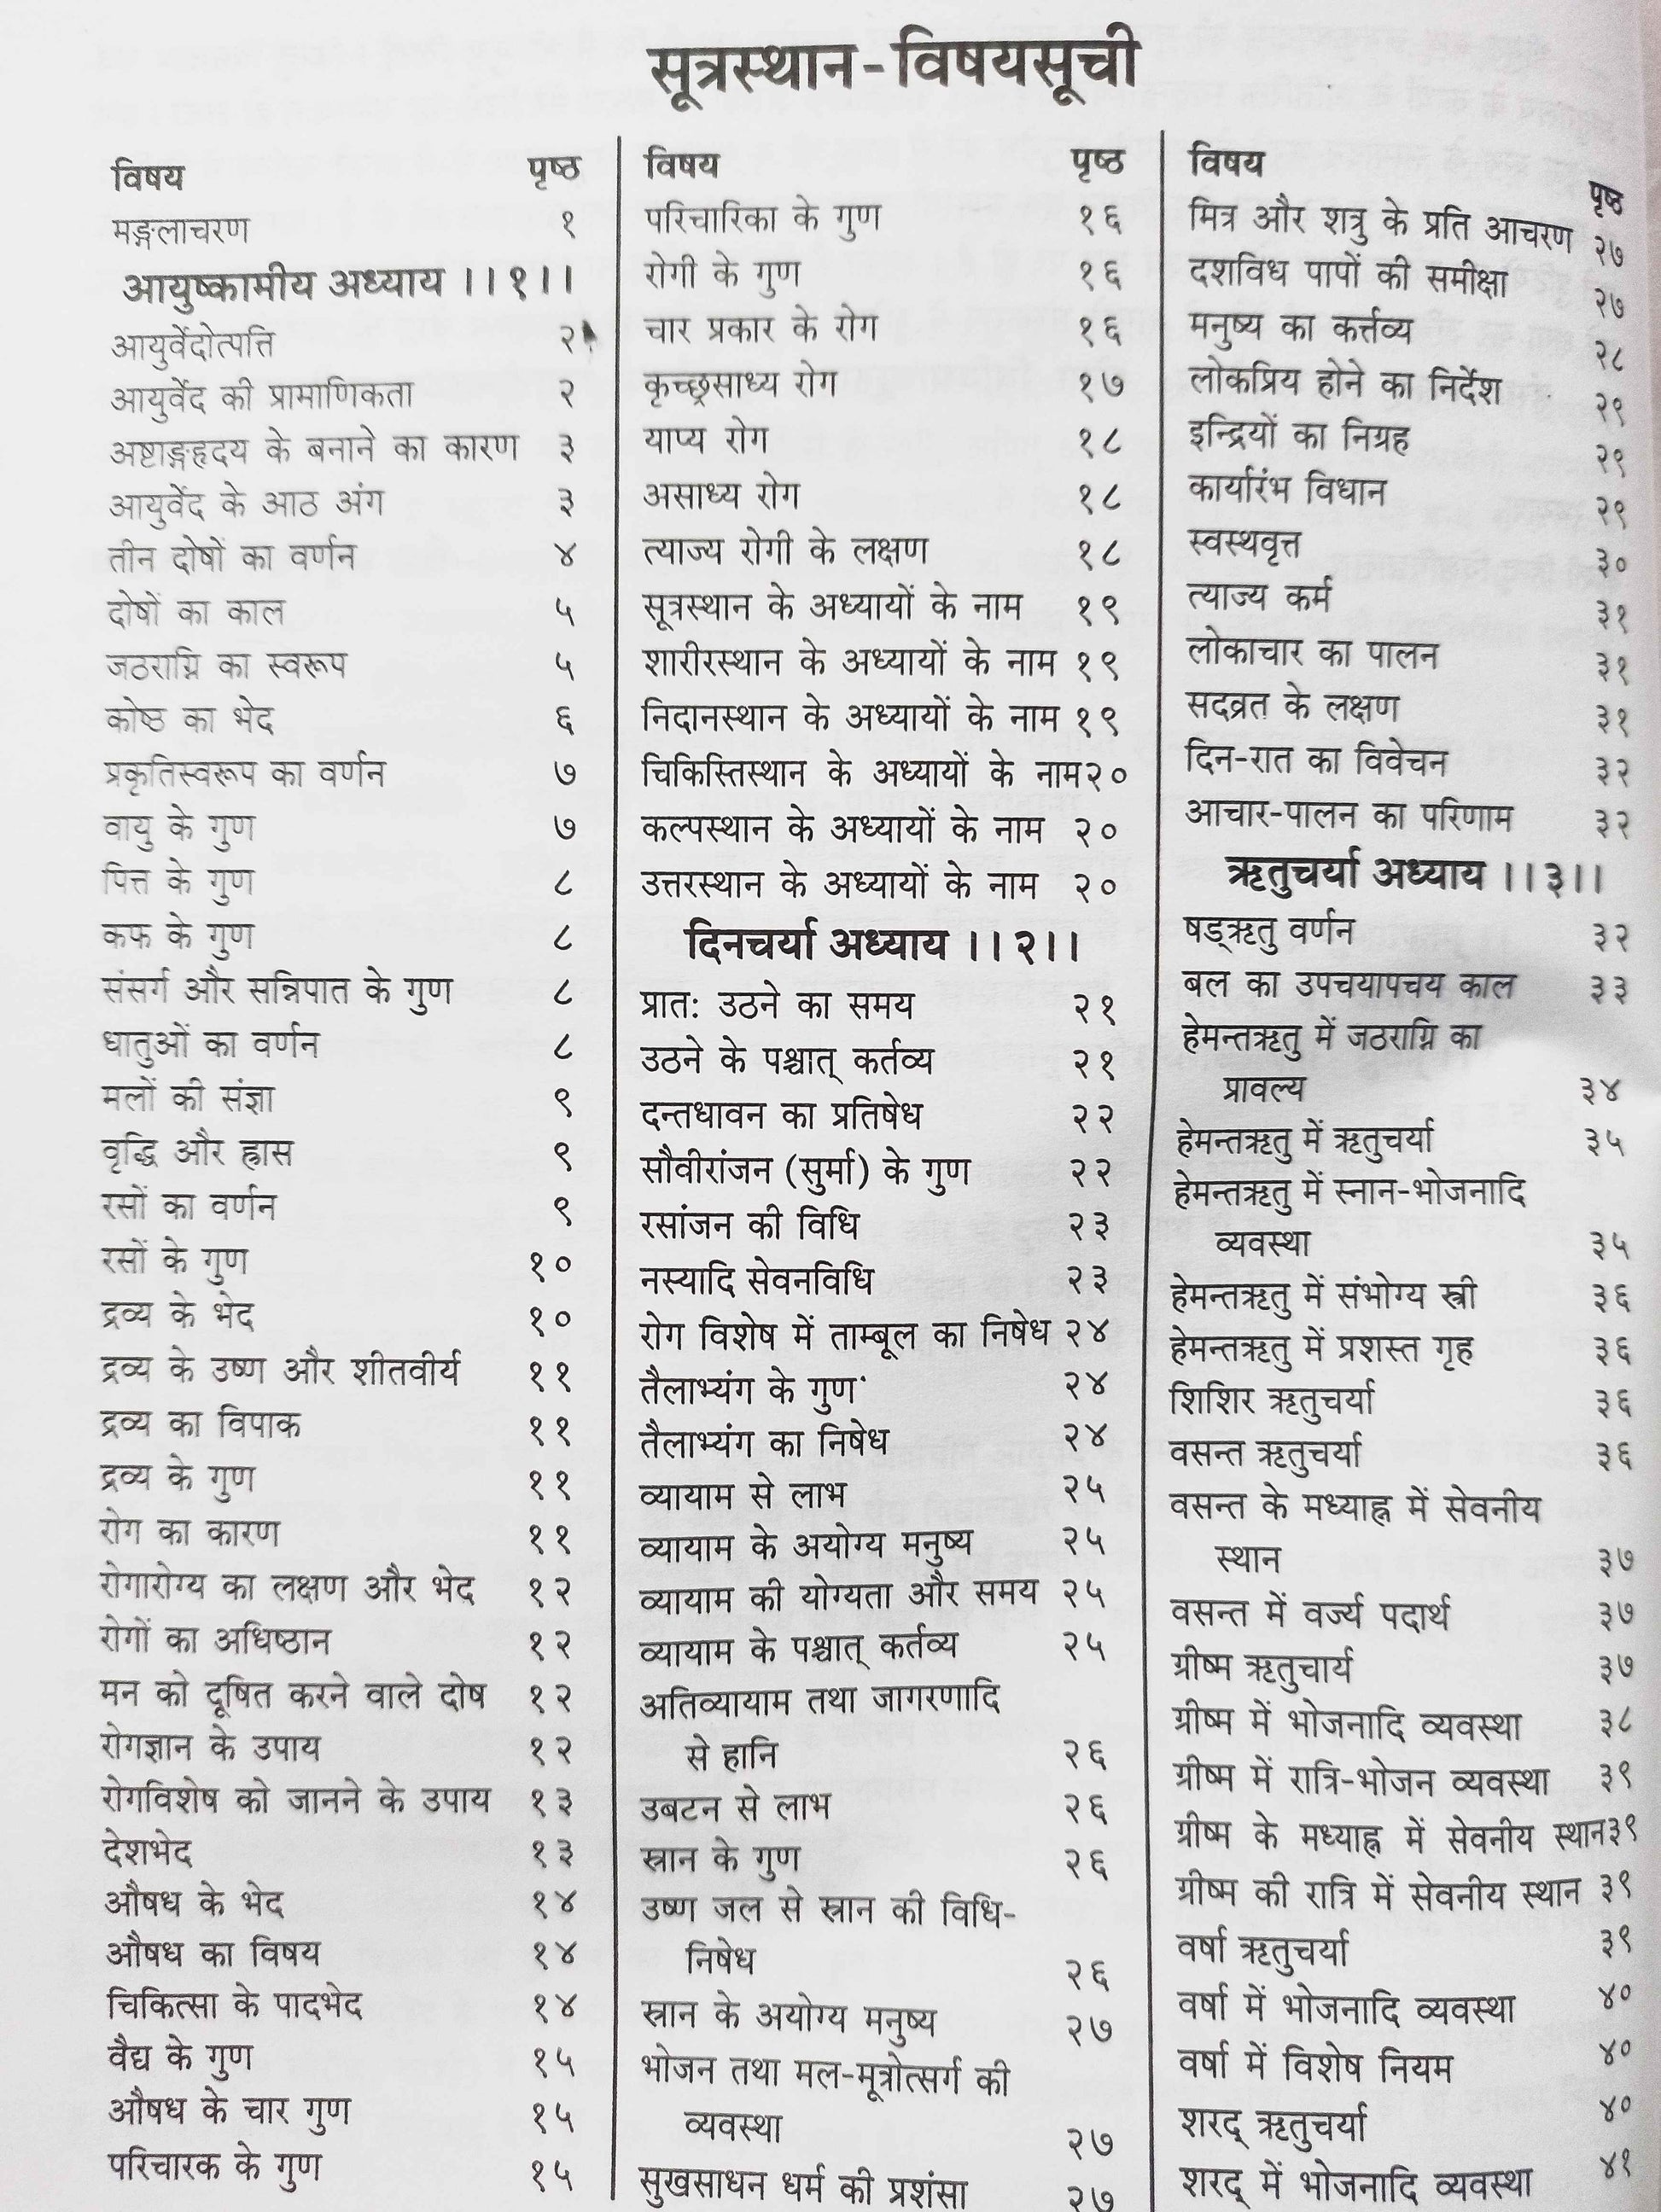 सूत्रस्थान-विषयसूची
विषय पृष्ठ
मङ्गलाचरण १
आयुष्कामीय अध्याय ।।१।।
आयुर्वेदोत्पत्ति २
आयुर्वेद की प्रामाणिकता २
अष्टाङ्गहृदय के बनाने का कारण ३
आयुर्वेद के आठ अंग ३
तीन दोषों का वर्णन ४
दोषों का काल ५
जठराग्नि का स्वरूप ५
कोष्ठ का भेद ६
प्रकृतिस्वरूप का वर्णन ७
वायु के गुण ७
पित्त के गुण ८
कफ के गुण ८
संसर्ग और सन्निपात के गुण ८
धातुओं का वर्णन ८
मलों की संज्ञा ९
वृद्धि और ह्रास ९
रसों का वर्णन ९
रसों के गुण १०
द्रव्य के भेद १०
द्रव्य के उष्ण और शीतवीर्य ११
द्रव्य का विपाक ११
द्रव्य के गुण ११
रोग का कारण ११
रोगारोग्य का लक्षण और भेद १२
रोगों का अधिष्ठान १२
मन को दूषित करने वाले दोष १२
रोगज्ञान के उपाय १२
रोगविशेष को जानने के उपाय १३
देशभेद १३
औषध के भेद १४
औषध का विषय १४
चिकित्सा के पादभेद १४
वैद्य के गुण १५
औषध के चार गुण १५
परिचारक के गुण १५
विषय पृष्ठ
परिचारिका के गुण १६
रोगी के गुण १६
चार प्रकार के रोग १६
कृच्छ्रसाध्य रोग १७
याप्य रोग १८
असाध्य रोग १८
त्याज्य रोगी के लक्षण १८
सूत्रस्थान के अध्यायों के नाम १९
शारीरस्थान के अध्यायों के नाम १९
निदानस्थान के अध्यायों के नाम १९
चिकिस्तिस्थान के अध्यायों के नाम२०
कल्पस्थान के अध्यायों के नाम २०
उत्तरस्थान के अध्यायों के नाम २०
दिनचर्या अध्याय ।।२।।
प्रात: उठने का समय २१
उठने के पश्चात् कर्तव्य २१
दन्तधावन का प्रतिषेध २२
सौवीरांजन (सुर्मा) के गुण २२
रसांजन की विधि २३
नस्यादि सेवनविधि २३
रोग विशेष में ताम्बूल का निषेध २४
तैलाभ्यंग के गुण २४
तैलाभ्यंग का निषेध २४
व्यायाम से लाभ २५
व्यायाम के अयोग्य मनुष्य २५
व्यायाम की योग्यता और समय २५
व्यायाम के पश्चात् कर्तव्य २५
अतिव्यायाम तथा जागरणादि
से हानि २६
उबटन से लाभ २६
स्नान के गुण २६
उष्ण जल से स्नान की विधि-
निषेध २६
स्नान के अयोग्य मनुष्य २७
भोजन तथा मल-मूत्रोत्सर्ग की
व्यवस्था २७
सुखसाधन धर्म की प्रशंसा २७
विषय पृष्ठ
मित्र और शत्रु के प्रति आचरण २७
दशविध पापों की समीक्षा २७
मनुष्य का कर्त्तव्य २८
लोकप्रिय होने का निर्देश २९
इन्द्रियों का निग्रह २९
कार्यारंभ विधान २९
स्वस्थवृत्त ३०
त्याज्य कर्म ३१
लोकाचार का पालन ३१
सदव्रत के लक्षण ३१
दिन-रात का विवेचन ३२
आचार-पालन का परिणाम ३२
ऋतुचर्या अध्याय ।।३।।
षड्ऋतु वर्णन ३२
बल का उपचयापचय काल ३३
हेमन्तऋतु में जठराग्नि का
प्रावल्य ३४
हेमन्तऋतु में ऋतुचर्या ३५
हेमन्तऋतु में स्नान-भोजनादि
व्यवस्था ३५
हेमन्तऋतु में संभोग्य स्त्री ३६
हेमन्तऋतु में प्रशस्त गृह ३६
शिशिर ऋतुचर्या ३६
वसन्त ऋतुचर्या ३६
वसन्त के मध्याह्न में सेवनीय
स्थान ३७
वसन्त में वर्ज्य पदार्थ ३७
ग्रीष्म ऋतुचार्य ३७
ग्रीष्म में भोजनादि व्यवस्था ३८
ग्रीष्म में रात्रि-भोजन व्यवस्था ३९
ग्रीष्म के मध्याह्न में सेवनीय स्थान३९
ग्रीष्म की रात्रि में सेवनीय स्थान ३९
वर्षा ऋतुचर्या ३९
वर्षा में भोजनादि व्यवस्था ४०
वर्षा में विशेष नियम ४०
शरद् ऋतुचर्या ४०
शरद् में भोजनादि व्यवस्था ४१